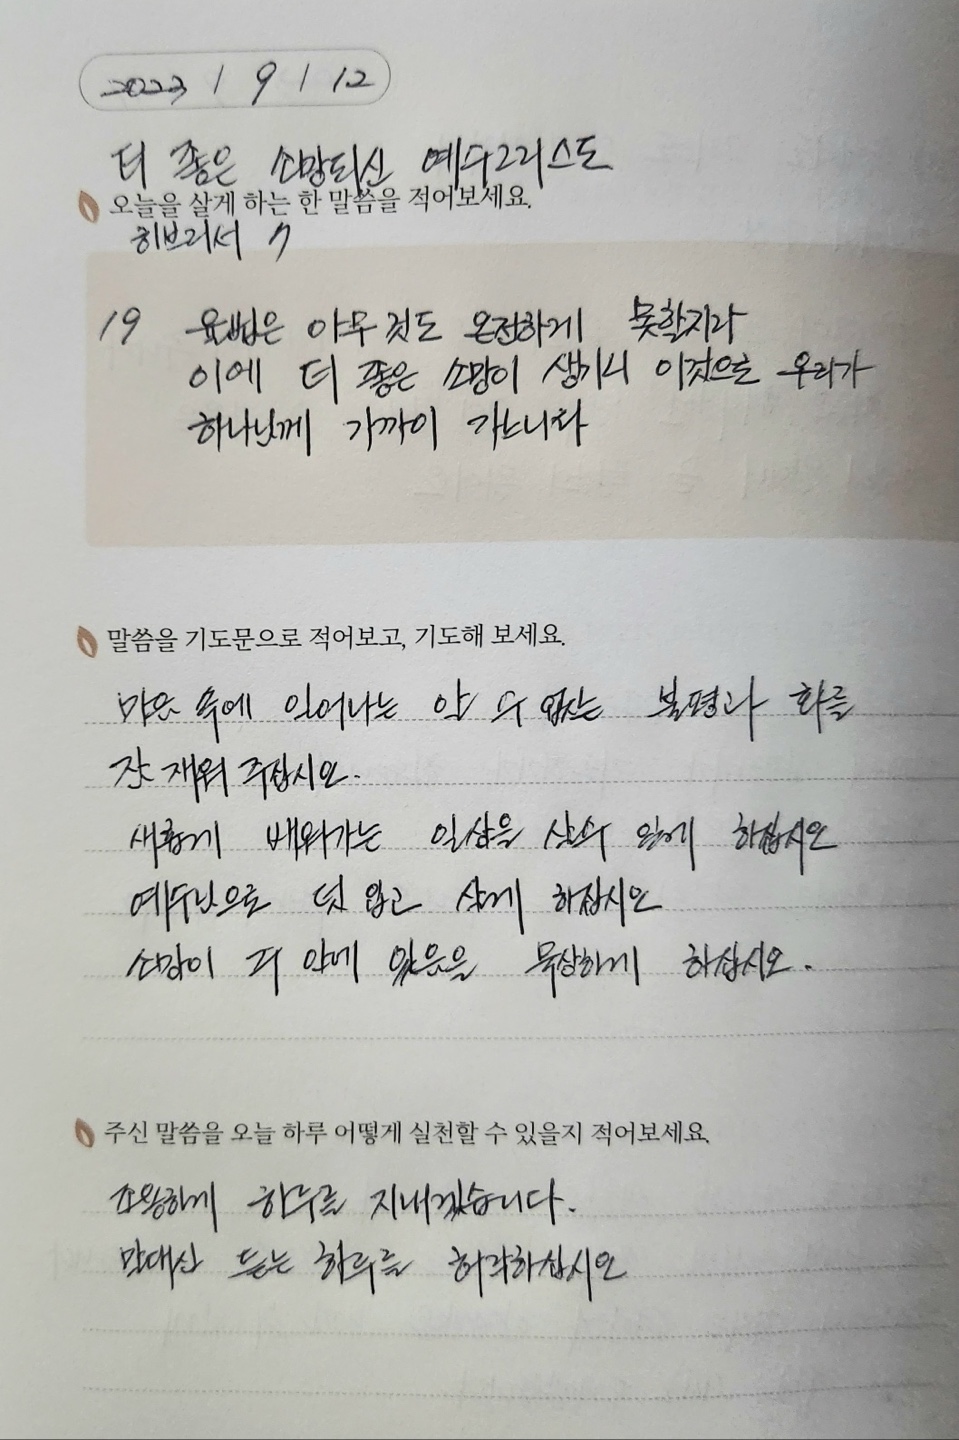 2023 / 9 / 12
더 좋은 소망되신 예수그리스도
오늘을 살게 하는 한 말씀을 적어보세요.
히브리서 7
19 율법은 아무 것도 온전하게 못할지라
이에 더 좋은 소망이 생기니 이것으로 우리가
하나님께 가까이 가느니라
말씀을 기도문으로 적어보고, 기도해 보세요.
마음 속에 일어나는 알 수 없는 불평과 화를
잘 재워 주십시오.
새롭게 배워가는 일상을 삶의 일에 하십시오
예수님으로 덧 입고 살게 하십시오
소망이 저 안에 있음을 묵상하게 하십시오.
주신 말씀을 오늘 하루 어떻게 실천할 수 있을지 적어보세요.
하루를 지내겠습니다.
듣는 하루를 허락하십시오